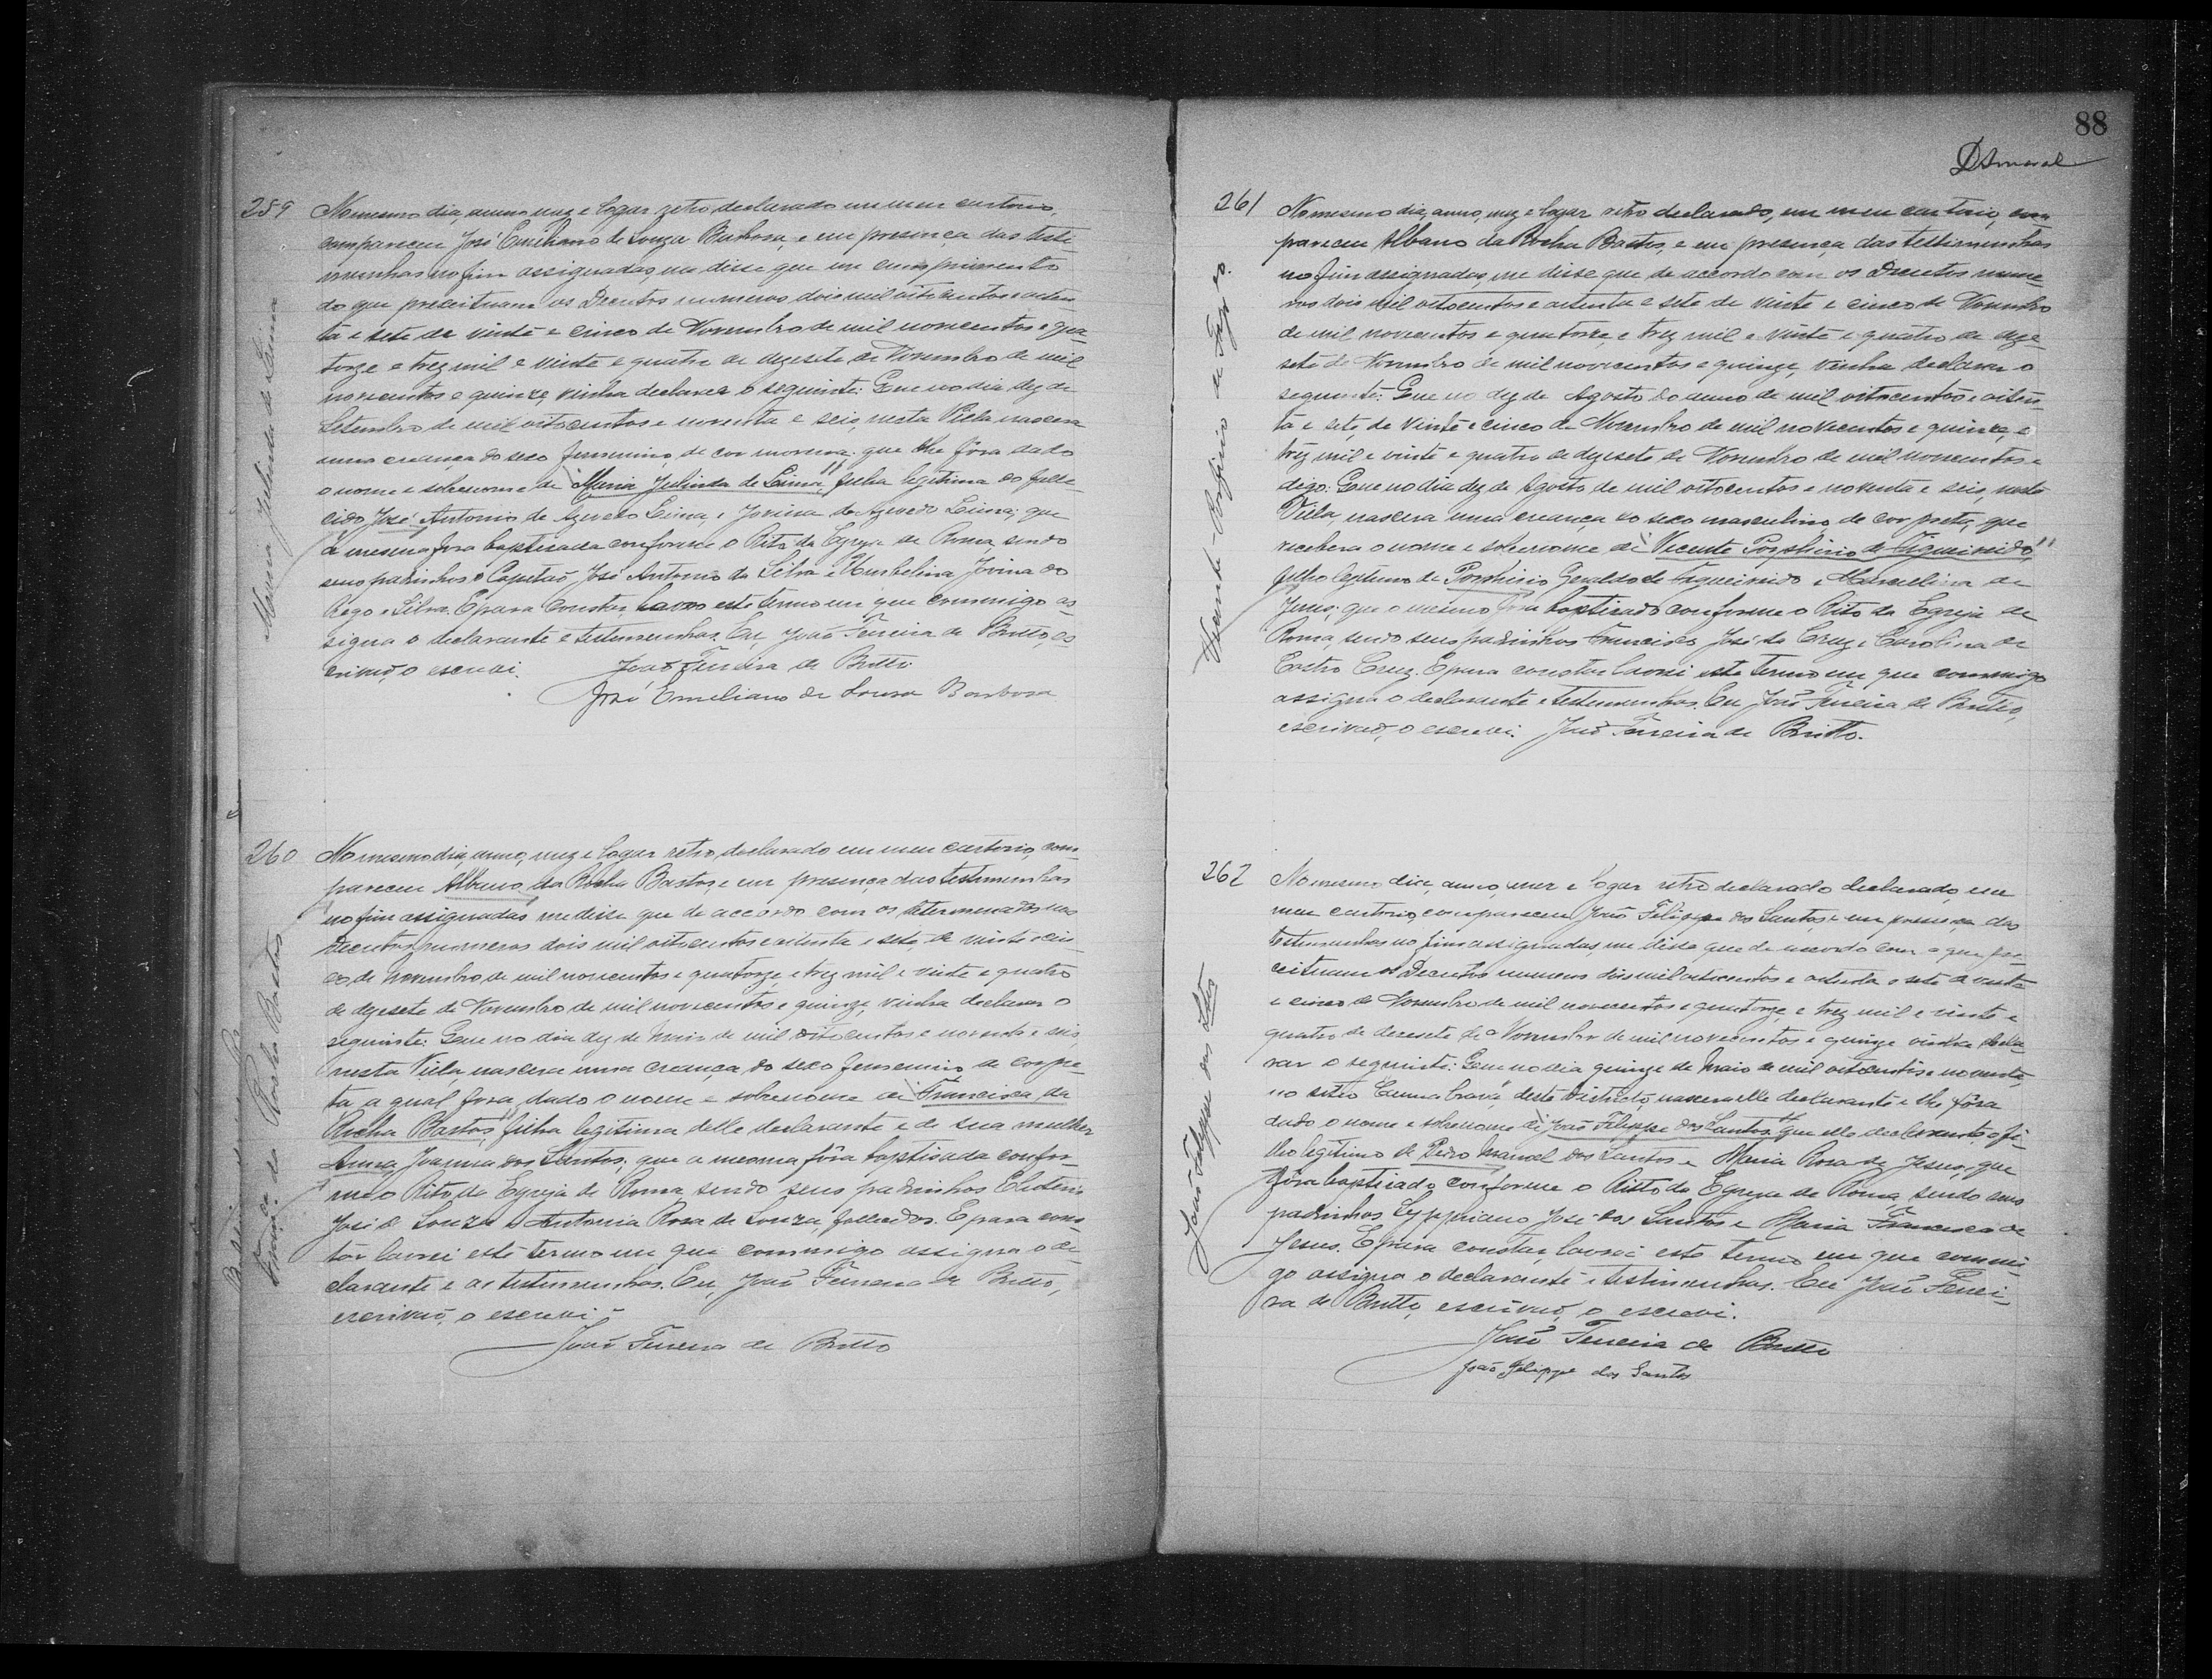 259
Maria Julinda de Lima
No mesmo dia, anno, mez e logar retro declarado em meu cartorio,
compareceu José Emiliano de Souza Barbosa, e em presença das teste
munhas no fim assignadas, me disse que em cumprimento
do que preceituam os Decretos numeros dois mil oitocentos e oiten
ta e sete de vinte e cinco de Novembro de mil novecentos e qua
torze e trez mil e vinte e quatro de dezesete de Novembro de mil
novecentos e quinze, vinha declarar o seguinte: Que no dia dez de
Setembro de mil oitocentos e noventa e seis, nesta Villa nascera
uma creança do sexo femenino, de cor morena, que lhe fôra dado
o nome e sobrenome de "Maria Julinda de Lima", filha legitima do falle
cido José Antonio de Azevedo Lima, e Jovina de Azevedo Lima; que
a mesma fora baptisada conforme o Rito da Egreja de Roma, sendo
seus padrinhos o Capitaõ José Antonio da Silva e Umbelina Jovina do
Rego e Silva. E para constar lavro este termo em que commigo as
signa o declarante e testemunhas. Eu, João Ferreira de Britto, es
crivaõ, o escrevi.
João Ferreira de Britto
José Emiliano de Sousa Barbosa
260
Francisca da Rocha Bastos
No mesmo dia, anno, mez e logar retro, declarado em meu cartorio, com
pareceu Albano da Rocha Bastos, e em presença das testemunhas
no fim assignadas me disse que de accordo com os determinados nos
Decretos numeros dois mil oitocentos e oitenta e sete de vinte e cin
co de Novembro de mil novecentos e quatorze e trez mil e vinte e quatro
de dezesete de Novembro de mil novecentos e quinze, vinha declarar o
seguinte: Que no dia dez de Maio de mil oitocentos e noventa e seis
nesta Villa, nascera uma creança do sexo femenino de cor pre
ta a qual fora dado o nome e sobrenome de "Francisca da
Rocha Bastos", filha legitima delle declarante e de sua mulher
Anna Joanna dos Santos, que a mesma fôra baptisada confor
me o Rito da Egreja de Roma sendo seus padrinhos
José de Souza e Antonia Rosa de Souza, fallecidos. E para cons
tar lavrei este termo em que commigo assigna o de
clarante e as testemunhas. Eu, João Ferreira de Britto,
escrivaõ, o escrevi.
João Ferreira de Britto
88
DAmaral
261
Vicente Porfirio de
No mesmo dia, anno, mez e logar retro declarado, em meu cartorio, com
pareceu Albano da Rocha Bastos, e em presença das testemunhas
no fim assignadas, me disse que de accordo com os Decretos nume
ros dois mil oitocentos e oitenta e sete de vinte e cinco de Novembro
de mil novecentos e quatorze e trez mil e vinte e quatro de deze
sete de Novembro de mil novecentos e quinze, vinha declarar o
seguinte: Que no dez de Agosto do anno de mil oitocentos e oiten
ta e sete, de vinte e cinco de Novembro de mil novecentos e quinze, e
trez mil e vinte e quatro de dezesete de Novembro de mil novecentos e
digo: Que no dia dez de Agosto de mil oitocentos e noventa e seis, nesta
Villa, nascera uma creança do sexo masculino, de cor preta, que
recebera o nome e sobrenome de "Vicente Porphirio de Figueirêdo"
filho legitimo de Porphirio Geraldo de Figueirêdo e Marcelina de
Jesus; que o mesmo fôra baptisado conforme o Rito da Egreja de
Roma, sendo seus padrinhos Francisco José da Cruz e Carolina de
Castro Cruz. E para constar lavrei este termo em que commigo
assigna o declarante e testemunhas. Eu João Ferreira de Britto,
escrivaõ, o escrevi. João Ferreira de Britto.
262
João Felippe dos Stos
No mesmo dia, anno, mez e logar retro declarado declarado, em
meu cartorio, compareceu João Felippe dos Santos, e em presença das
testemunhas no fim assignadas, me disse que de accordo com o que pre
ceituam os Decretos numeros dois mil oitocentos e oitenta e sete de vinte
e cinco de Novembro de mil novecentos e quatorze, e trez mil e vinte e
quatro de dezesete de Novembro de mil novecentos e quinze vinha decla
rar o seguinte: Que no dia quinze de Maio de mil oitocentos e noventa,
no sitio deste districto, nascera elle declarante e lhe fôra
dado o nome e sobrenome de "João Felippe dos Santos" que elle declarante é fi
lho legitimo de Pedro Manoel dos Santos e Maria Rosa de Jesus, que
fôra baptisado conforme o Ritto da Egreja de Roma, sendo seus
padrinhos Cyppriano José dos Santos e Maria Francisca de
Jesus. E para constar, lavrei este termo em que commi
go assigna o declarante e testemunhas. Eu João Ferrei
ra de Britto, escrivaõ, o escrevi.
João Ferreira de Britto
João Felippe dos Santos